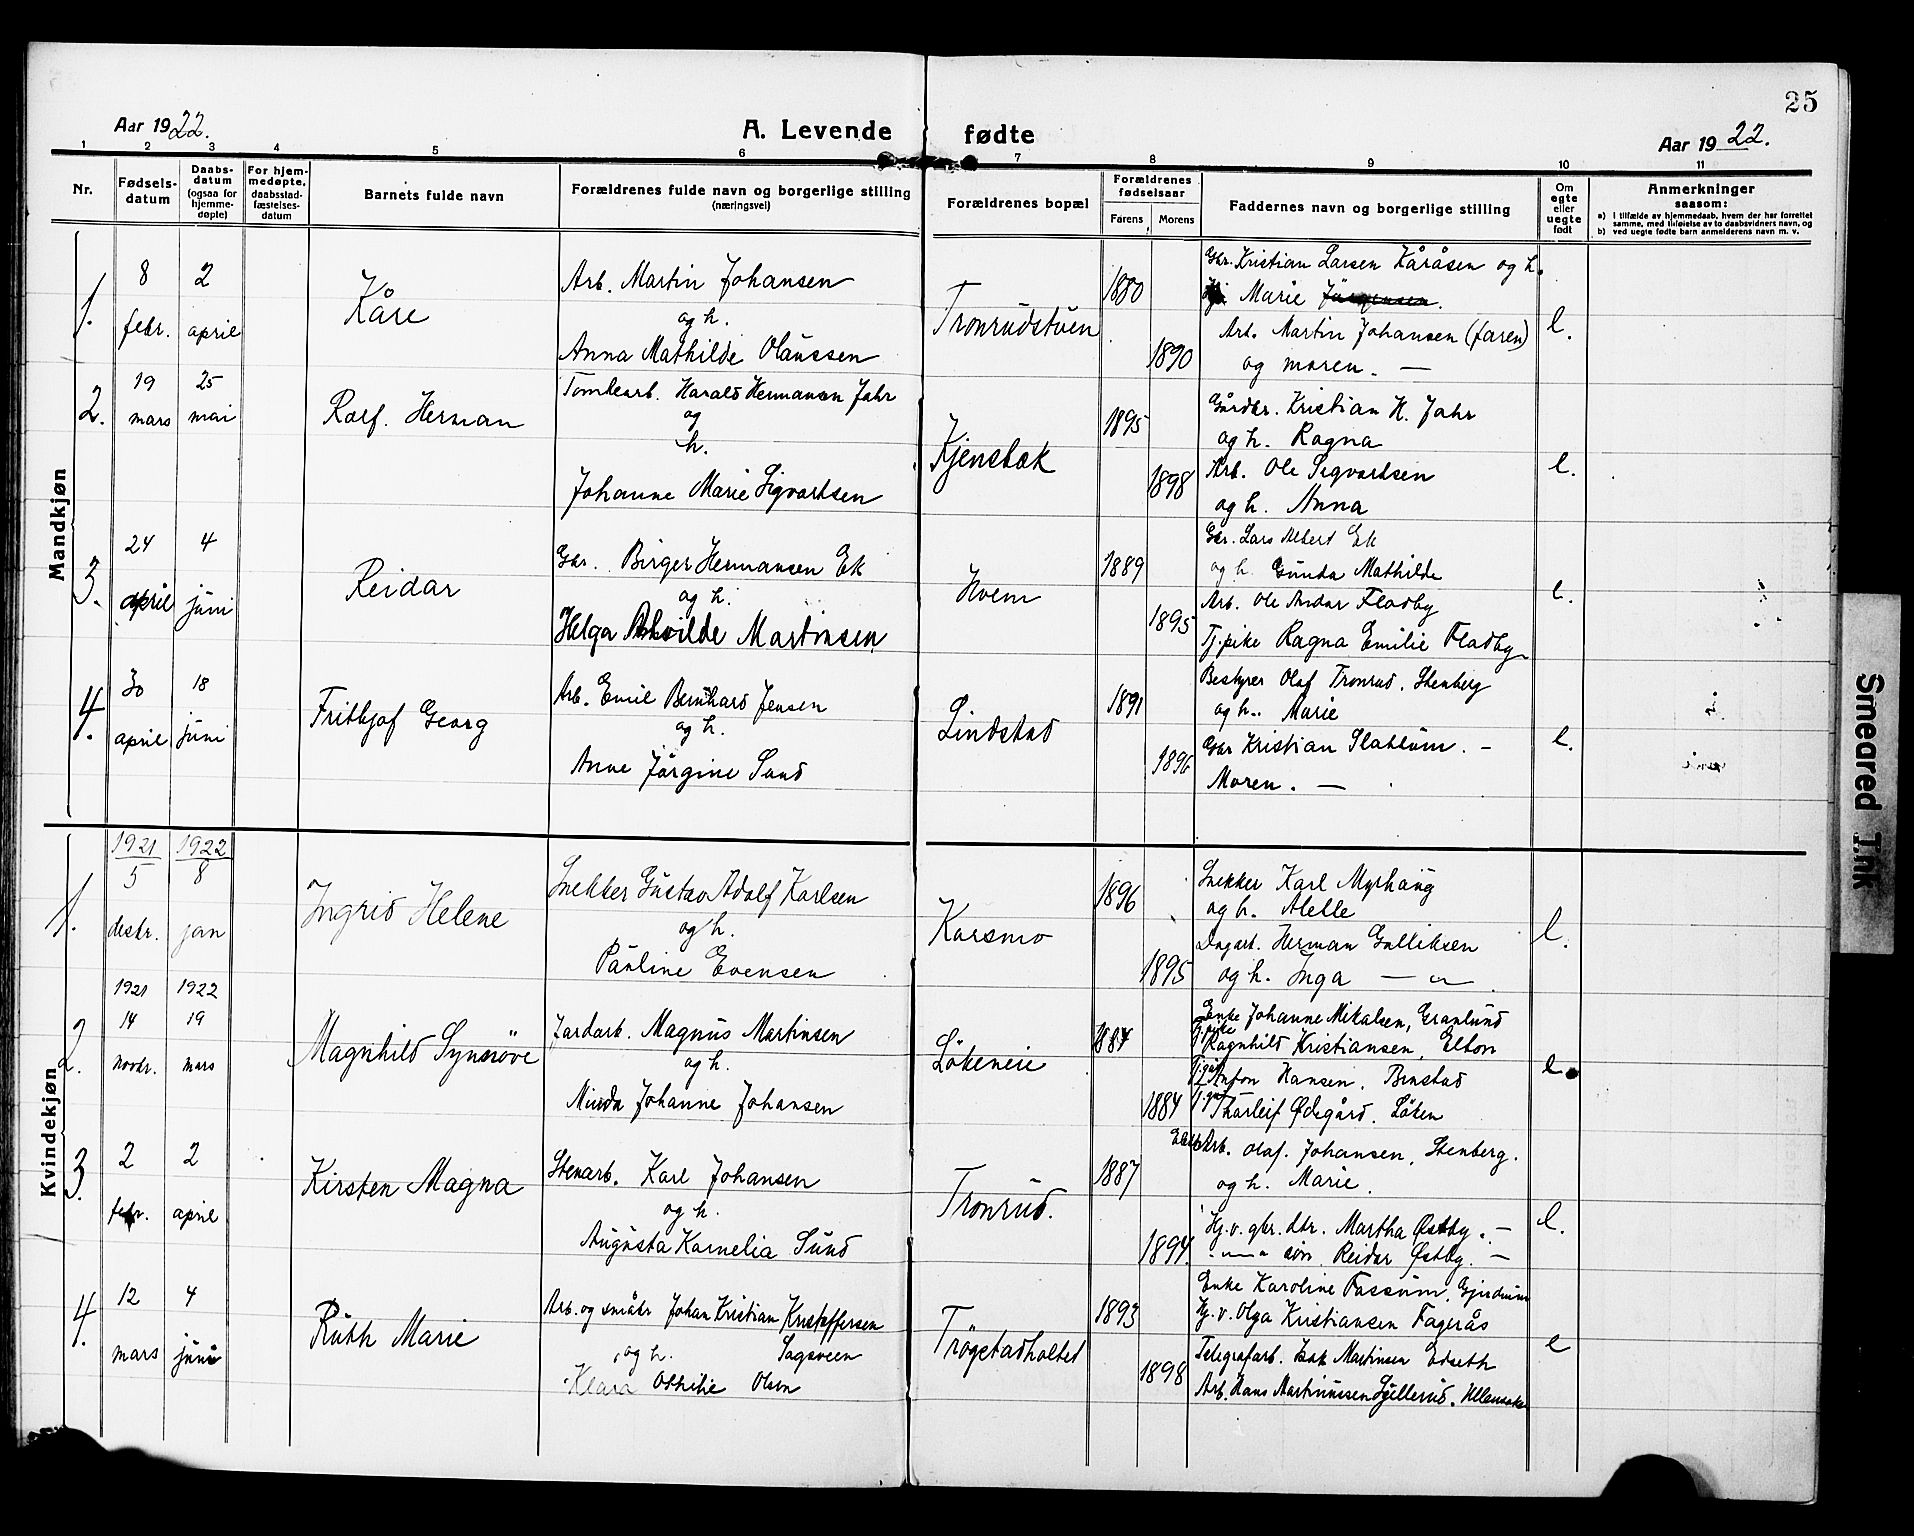 25
Aar 1922.
A. Levende fødte
Aar 1922.
1 2 3 4 5 6 7 8 9 10 11
Nr.
Fødsels-datum
Daabs-datum (ogsaa for hjemme-døpte)
For hjem-medøpte, daabsstad-fæstelses-datum
Barnets fulde navn
Forældrenes fulde navn og borgerlige stilling (næringsvei)
Forældrenes bopæl
Forældrenes fødselsaar
Farens Morens
Faddernes navn og borgerlige stilling
Om egte eller uegte født
Anmerkninger saasom:
a) I tilfælde av hjemmedaab, hvem der har forrettet samme, med tilføielse av to daabsvidners navn, og
b) ved uegte fødte barn anmelderens navn m. v.
Mandkjøn
1.
8 febr.
2 april
Kåre
Arb. Martin Johansen
og h.
Anna Mathilde Olaussen
Tronrudstuen
1880
1890
Gbr. Kristian Larsen Kåråsen og h.
Marie Jørgensen.
Arb. Martin Johansen (faren)
og moren. —
e.
2.
19 mars
25 mai
Rolf. Herman
Tomtearb. Harald Hermansen Jahr
og
h.
Johanne Marie Sigvartsen
Kjenstak
1895
1898
Gårdbr. Kristian H. Jahr
og h. Ragna
Arb. Ole Sigvartsen
og h. Anna
e.
3.
24 april
4 juni
Reidar
Gbr. Birger Hermansen Ek
og h.
Helga Martinsen
Hvem
1889
1895
Gbr. Lars Albert Ek
og h. Gunda Mathilde
Arb. Ole Andar Fladby
Tj.pike Ragna Emilie Fladby
e.
4.
30 april
18 juni
Fritkjof Georg
Arb. Emil Bernhard Jensen
og h.
Anne Jørgine Sand
Lindstad
1891
1896
Bestyrer Olaf Tronrud. Stenberg
og h. Marie
Gbr Kristian Slatlum. —
Moren. —
e.
Kvindekjøn
1.
1921 5 desbr.
1922 8 jan
Ingrid Helene
Snekker Gustav Adolf Karlsen
og h.
Pauline Evensen
Karsmo
1896
1895
Snekker Karl Myrhaug
og h. Alelle
Dagarb. Herman Gulliksen
og h. Inga — " .
e.
2.
1921 14 novbr.
1922 19 mars
Magnhild Synnöve
Jordarb. Magnus Martinsen
og h.
Minda Johanne Johansen
Løkeneie
1884
1884
Enke Johanne Mikalsen, Granlund
Tj.pike Ragnhild Kristiansen, Elton
Tj.gut Anton Hansen. Binstad
Tj.gut Thorleif Ødegård. Løken
e.
3.
2 febr.
2 april
Kirsten Magna
Stenarb. Karl Johansen
og h.
Augusta Kornelia Sund
Tronrud.
1887
1894.
Arb. Olaf. Johansen, Stenberg.
og h. Marie.
Hj.v. gbr. dtr. Martha Østby. —
— " — søn Reidar Østby. —
e.
4.
12 mars
4 juni
Ruth Marie
Arb. og småbr Johan Kristian Kristoffersen
og h. Sagsveen
Klara Othilie Olsen
Trøgstadholtet
1893
1898
Enke Karoline Fossum, Gjerdrum
Hj.v. Olga Kristiansen Fagerås
Telegrafarb. Isak Martinsen Edseth
Arb. Hans Martinussen Lyllerud. Ullensaker
e
Smeared Ink